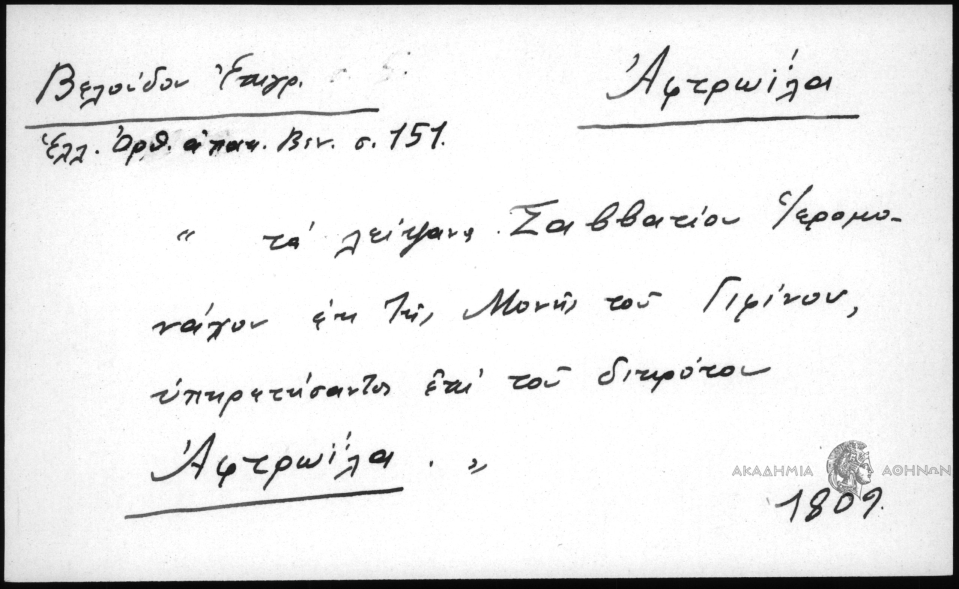 Βελούδου Ἐπιγρ.
Ἀφτρωΐλα
Ἑλλ. Ὀρθ. ἀποικ. Βεν. σ. 151.
“ τά λείψανα Σαββατίου Ἱερομο-
νάχου ἐκ τῆς Μονῆς τοῦ Γιρίνου,
ὑπηρετήσαντος ἐπί τοῦ δικρότου
Ἀφτρωΐλα. „
ΑΚΑΔΗΜΙΑ ΑΘΗΝΩΝ
1809.